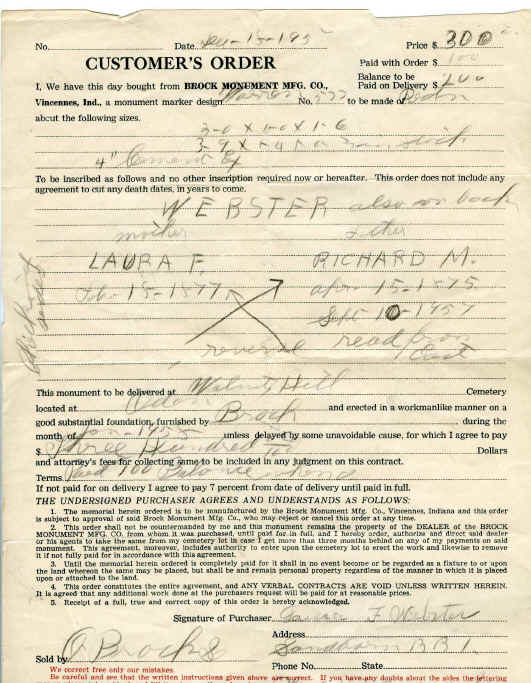 No. Date Price $ 300
CUSTOMER'S ORDER Paid with Order $ 100
I, We have this day bought from BROCK MONUMENT MFG. CO., Balance to be Paid on Delivery $ 200
Vincennes, Ind., a monument marker design No. to be made of
about the following sizes.
3-0 x 1-0 x 1-6
4" Cement
To be inscribed as follows and no other inscription required now or hereafter. This order does not include any
agreement to cut any death dates, in years to come.
WEBSTER also on back
mother father
LAURA F. RICHARD M.
Feb. 15-1877 apr. 15-1875
Sept 10-1957
reverse read from East
This monument to be delivered at Walnut Hill Cemetery
located at Odon and erected in a workmanlike manner on a
good substantial foundation, furnished by Brock, during the
month of unless delayed by some unavoidable cause, for which I agree to pay
$ Three Hundred Dollars
and attorney's fees for collecting same to be included in any judgment on this contract.
Terms Paid 100 Balance when
If not paid for on delivery I agree to pay 7 percent from date of delivery until paid in full.
THE UNDERSIGNED PURCHASER AGREES AND UNDERSTANDS AS FOLLOWS:
1. The memorial herein ordered is to be manufactured by the Brock Monument Mfg. Co., Vincennes, Indiana and this order
is subject to approval of said Brock Monument Mfg. Co., who may reject or cancel this order at any time.
2. This order shall not be countermanded by me and this monument remains the property of the DEALER of the BROCK
MONUMENT MFG. CO. from whom it was purchased, until paid for in full, and I hereby order, authorize and direct said dealer
or his agents to take the same from my cemetery lot in case I get more than three months behind on any of my payments on said
monument. This agreement, moreover, includes authority to enter upon the cemetery lot to erect the work and likewise to remove
it if not fully paid for in accordance with this agreement.
3. Until the memorial herein ordered is completely paid for it shall in no event become or be regarded as a fixture to or upon
the land whereon the same may be placed, but shall be and remain personal property regardless of the manner in which it is placed
upon or attached to the land.
4. This order constitutes the entire agreement, and ANY VERBAL CONTRACTS ARE VOID UNLESS WRITTEN HEREIN.
It is agreed that any additional work done at the purchasers request will be paid for at reasonable prices.
5. Receipt of a full, true and correct copy of this order is hereby acknowledged.
Signature of Purchaser Laura F Webster
Address Sandborn RR 1.
Sold by Phone No. State
We correct free only our mistakes.
Be careful and see that the written instructions given above are correct. If you have any doubts about the sides the lettering